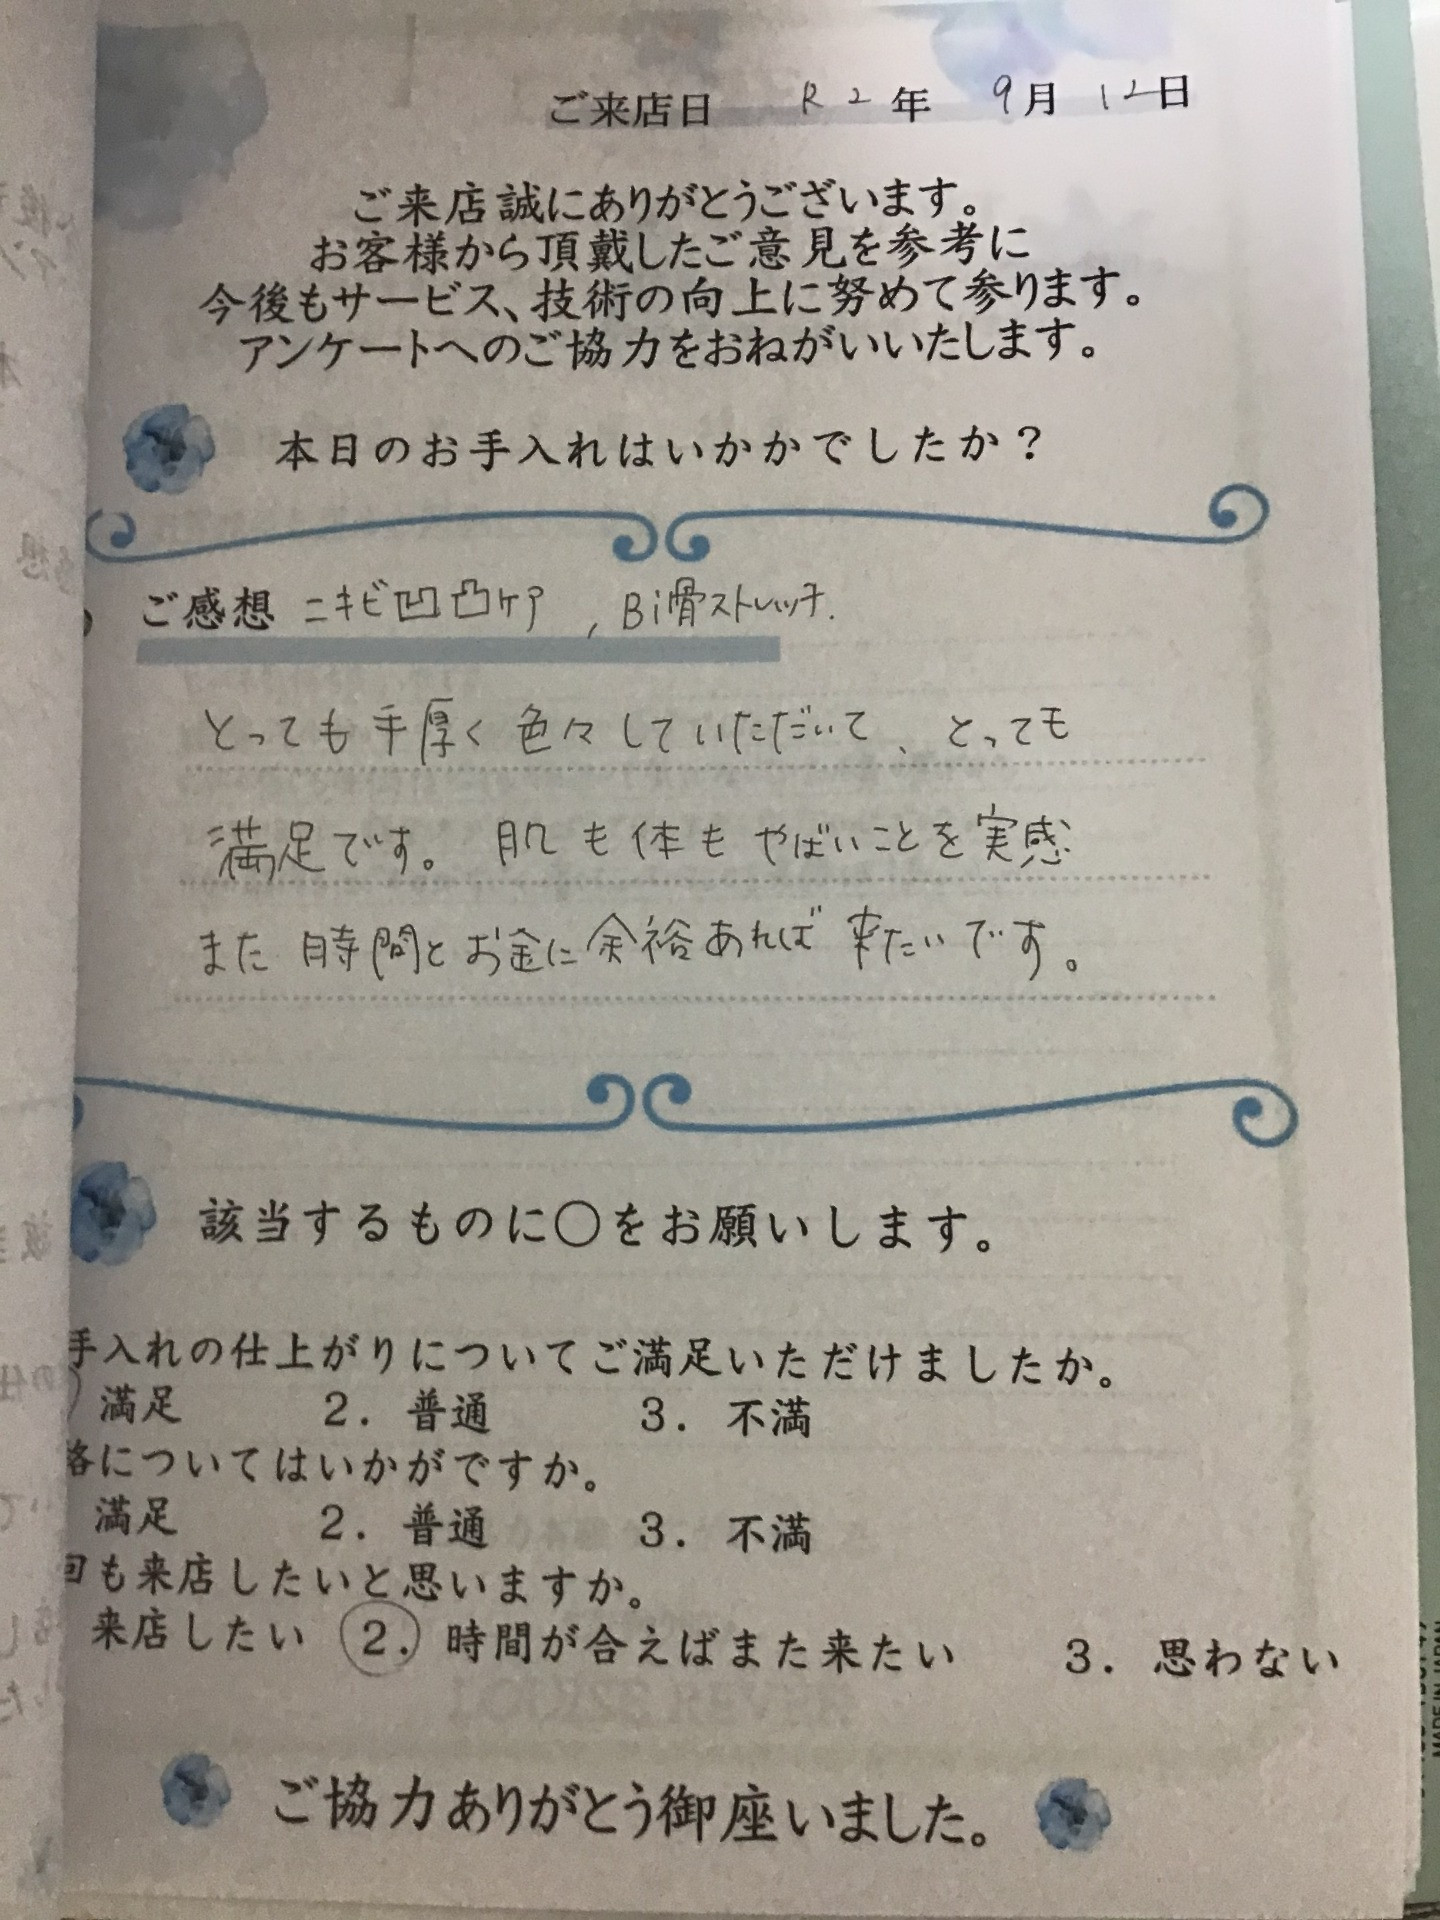 ご来店日 R2年 9月 12日
ご来店誠にありがとうございます。
お客様から頂戴したご意見を参考に
今後もサービス、技術の向上に努めて参ります。
アンケートへのご協力をおねがいいたします。
本日のお手入れはいかかでしたか？
ご感想 ニキビ凹凸ケア , Bi骨ストレッチ.
とっても手厚く色々していただいて、とっても
満足です。肌も体もやばいことを実感
また時間とお金に余裕あれば来たいです。
該当するものに〇をお願いします。
手入れの仕上がりについてご満足いただけましたか。
満足 2. 普通 3. 不満
格についてはいかがですか。
満足 2. 普通 3. 不満
回も来店したいと思いますか。
来店したい 2. 時間が合えばまた来たい 3. 思わない
ご協力ありがとう御座いました。
MADE IN JAPAN